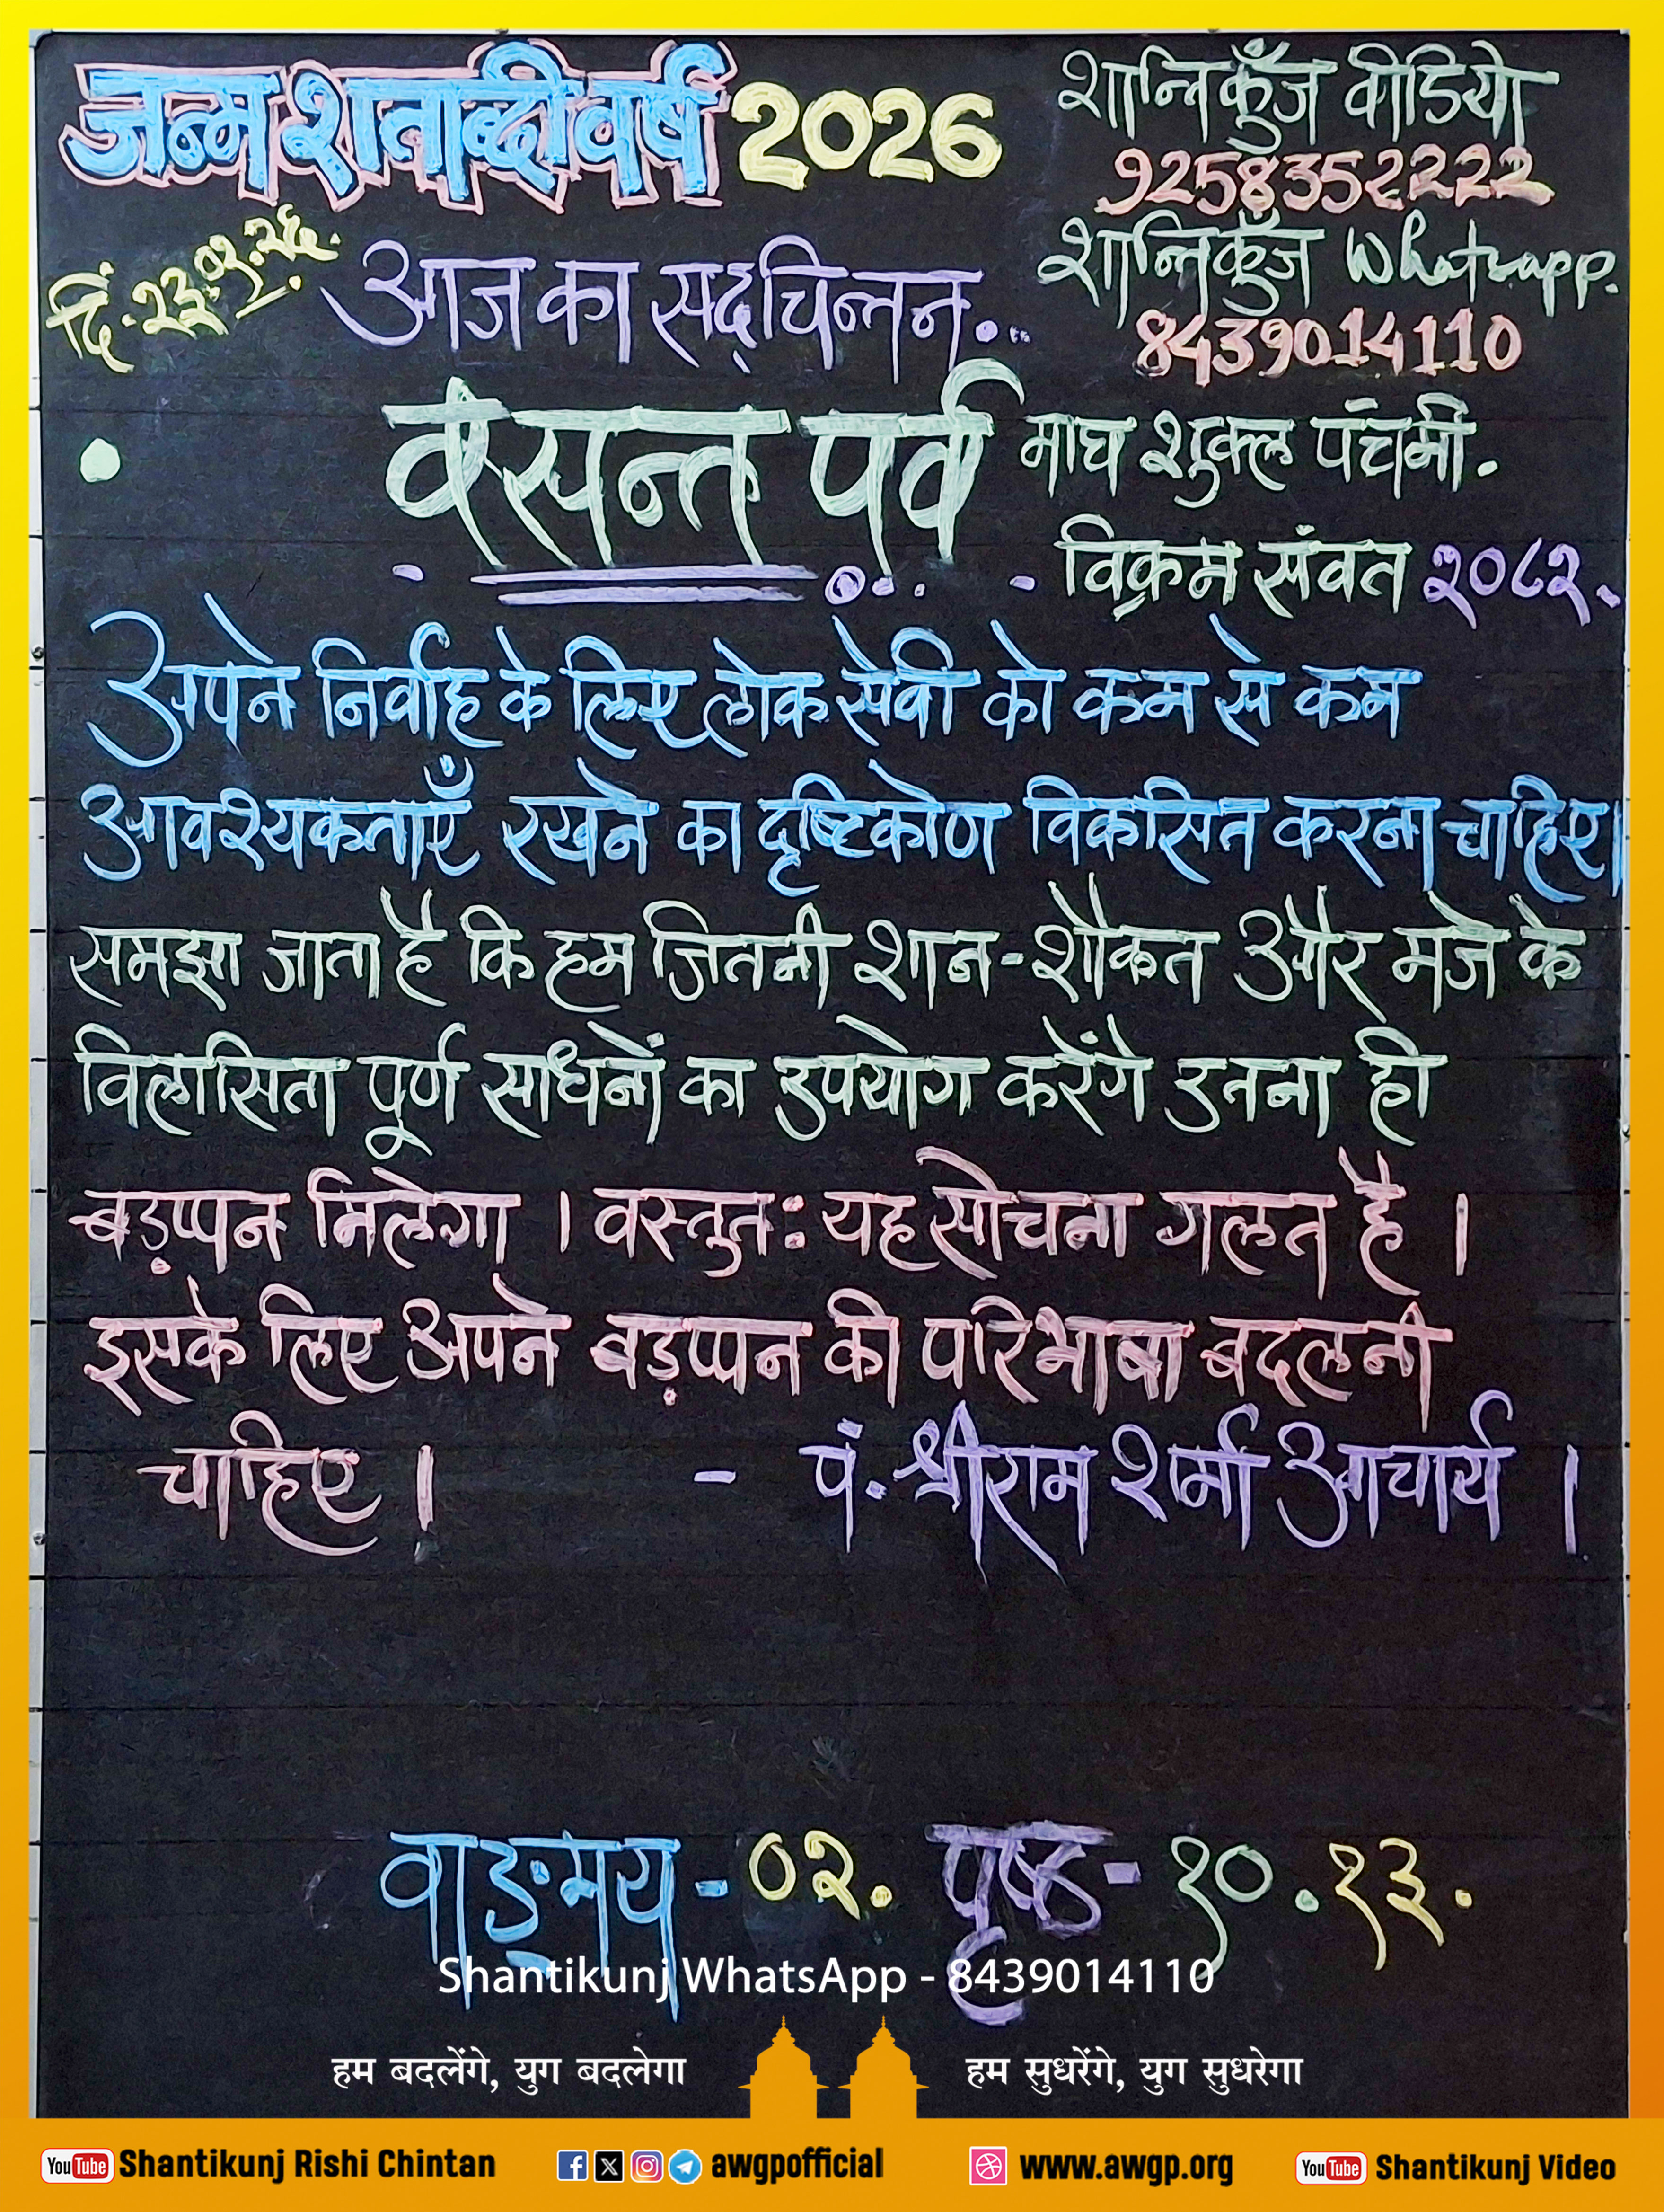 जन्म शताब्दी वर्ष 2026
शान्तिकुँज वीडियो
9258352222
शान्तिकुँज Whatsapp.
8439014110
दिं. २३.०१.२६.
आज का सद्‌चिन्तन...
वसन्त पर्व
माघ शुक्ल पंचमी.
विक्रम संवत २०८२.
अपने निर्वाह के लिए लोक सेवी को कम से कम
आवश्यकताएँ रखने का दृष्टिकोण विकसित करना चाहिए।
समझा जाता है कि हम जितनी शान-शौकत और मजे के
विलासिता पूर्ण साधनों का उपयोग करेंगे उतना ही
बड़प्पन मिलेगा । वस्तुत: यह सोचना गलत है ।
इसके लिए अपने बड़प्पन की परिभाषा बदलनी
चाहिए ।
- पं. श्रीराम शर्मा आचार्य ।
वाङ्‌मय - ०२. पृष्ठ - १०.१३.
Shantikunj WhatsApp - 8439014110
हम बदलेंगे, युग बदलेगा
हम सुधरेंगे, युग सुधरेगा
YouTube Shantikunj Rishi Chintan
awgpofficial
www.awgp.org
YouTube Shantikunj Video